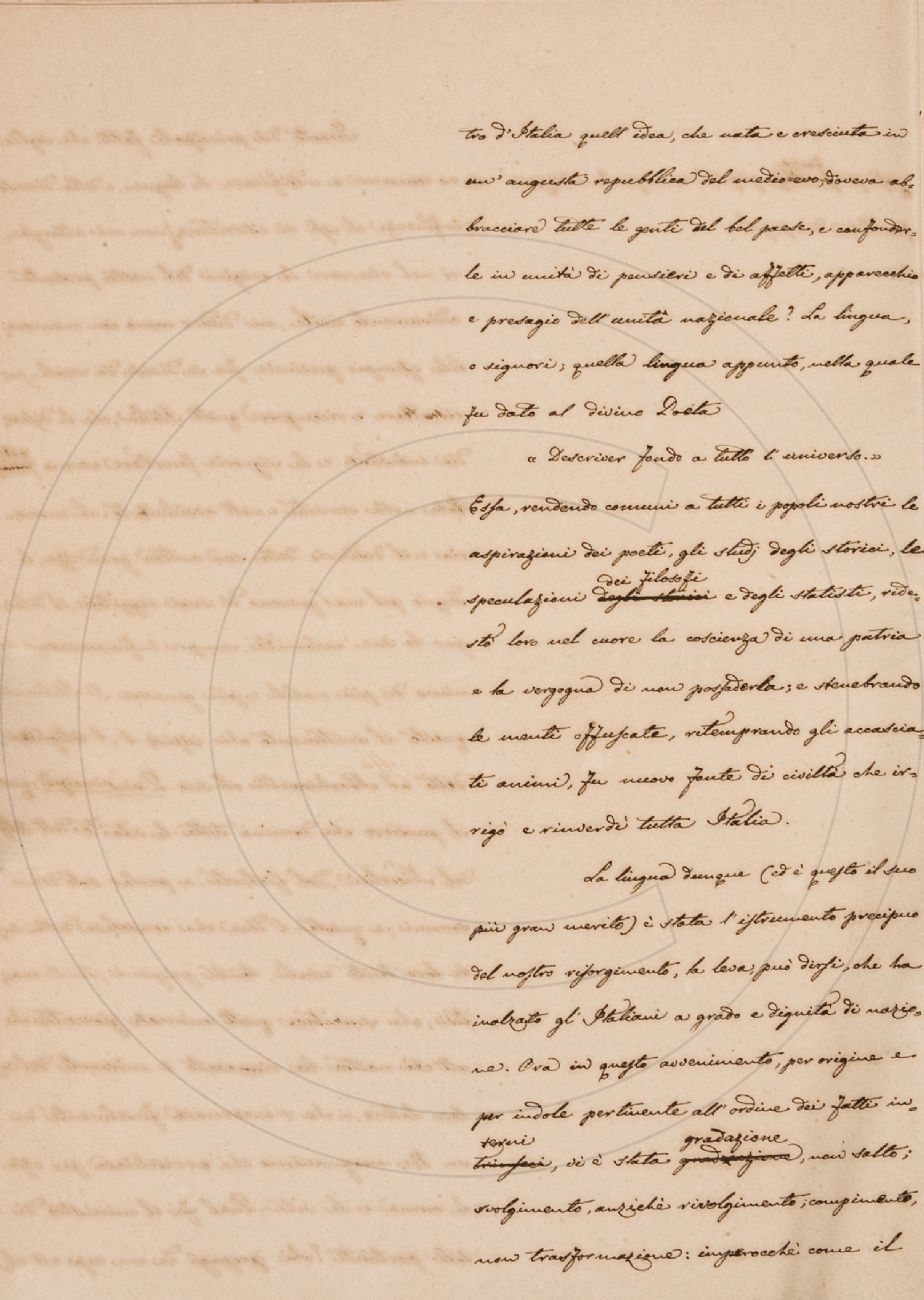 tro d'Italia quell'idea, che nata e cresciuta in
un'augusta repubblica del medio-evo, doveva ab-
bracciare tutte le genti del bel paese, e confonder-
le in unità di pensieri e di affetti, apparecchio
e presagio dell'unità nazionale? La lingua,
o signori; quella lingua appunto, nella quale
fu dato al divino Poeta
« Descriver fondo a tutto l'universo. »
Essa, rendendo comuni a tutti i popoli nostri le
aspirazioni dei poeti, gli studj degli storici, le
dei filosofi
speculazioni degli storici e degli statisti, ride-
stò loro nel cuore la coscienza di una patria
e la vergogna di non possederla; e stenebrando
le menti offuscate, ritemprando gli accascia-
ti animi, fu nuovo fonte di civiltà che ir-
rigò e rinverdì tutta Italia.
La lingua dunque (ed è questo il suo
più gran merito) è stata l'istrumento precipuo
del nostro risorgimento, la leva, può dirsi, che ha
inalzato gl'Italiani a grado e dignità di nazio-
ne. Ora in questo avvenimento, per origine e
per indole pertinente all'ordine dei fatti in-
terni gradazione
trinseci, vi è stata gradazione, non salto;
svolgimento, anziché rivolgimento; compimento,
non trasformazione: imperocchè come il